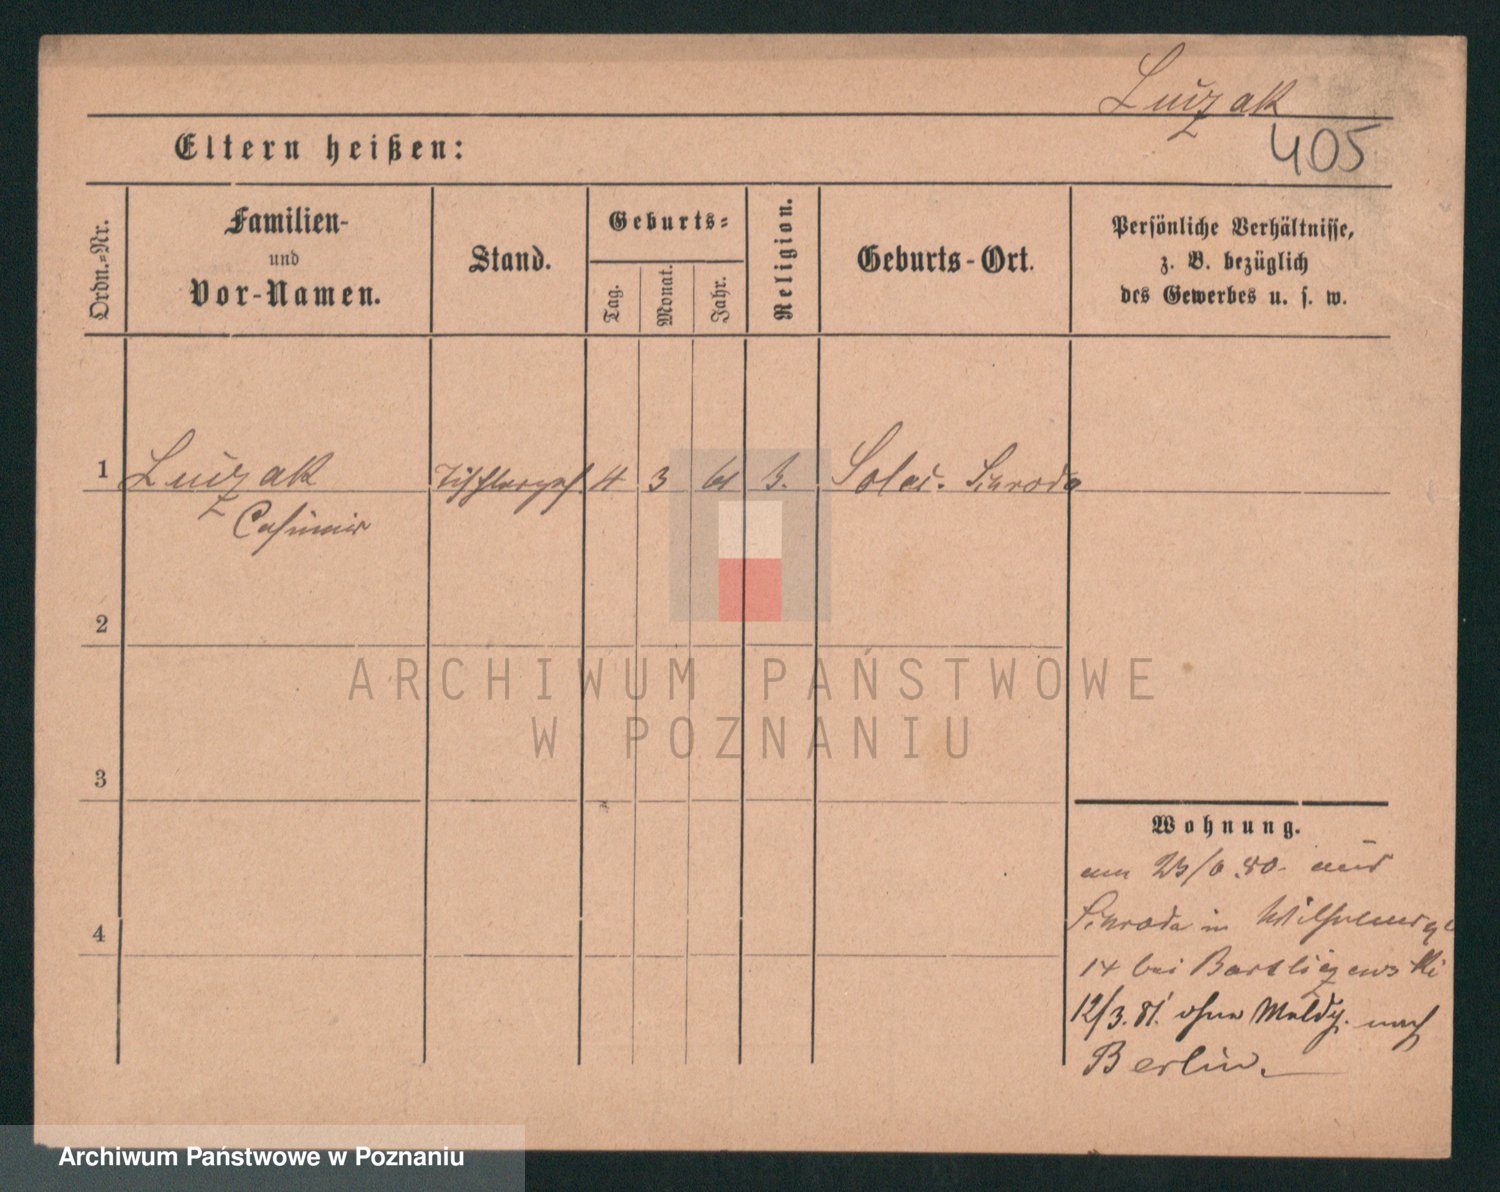 Luczak
405
Eltern heißen:
Ordn.-Nr.
Familien-
und
Vor-Namen.
Stand.
Geburts-
Tag.
Monat.
Jahr.
Religion.
Geburts-Ort.
Persönliche Verhältnisse,
z. B. bezüglich
des Gewerbes u. s. w.
1 Luczak Tischlerges. 4 3 61 Solec. Schroda
Casimir
2
ARCHIWUM PAŃSTWOWE
W POZNANIU
3
Wohnung.
80. aus
Schroda in
4
14 bei
12/3.81. ohne Meldg. nach
Berlin.
Archiwum Państwowe w Poznaniu